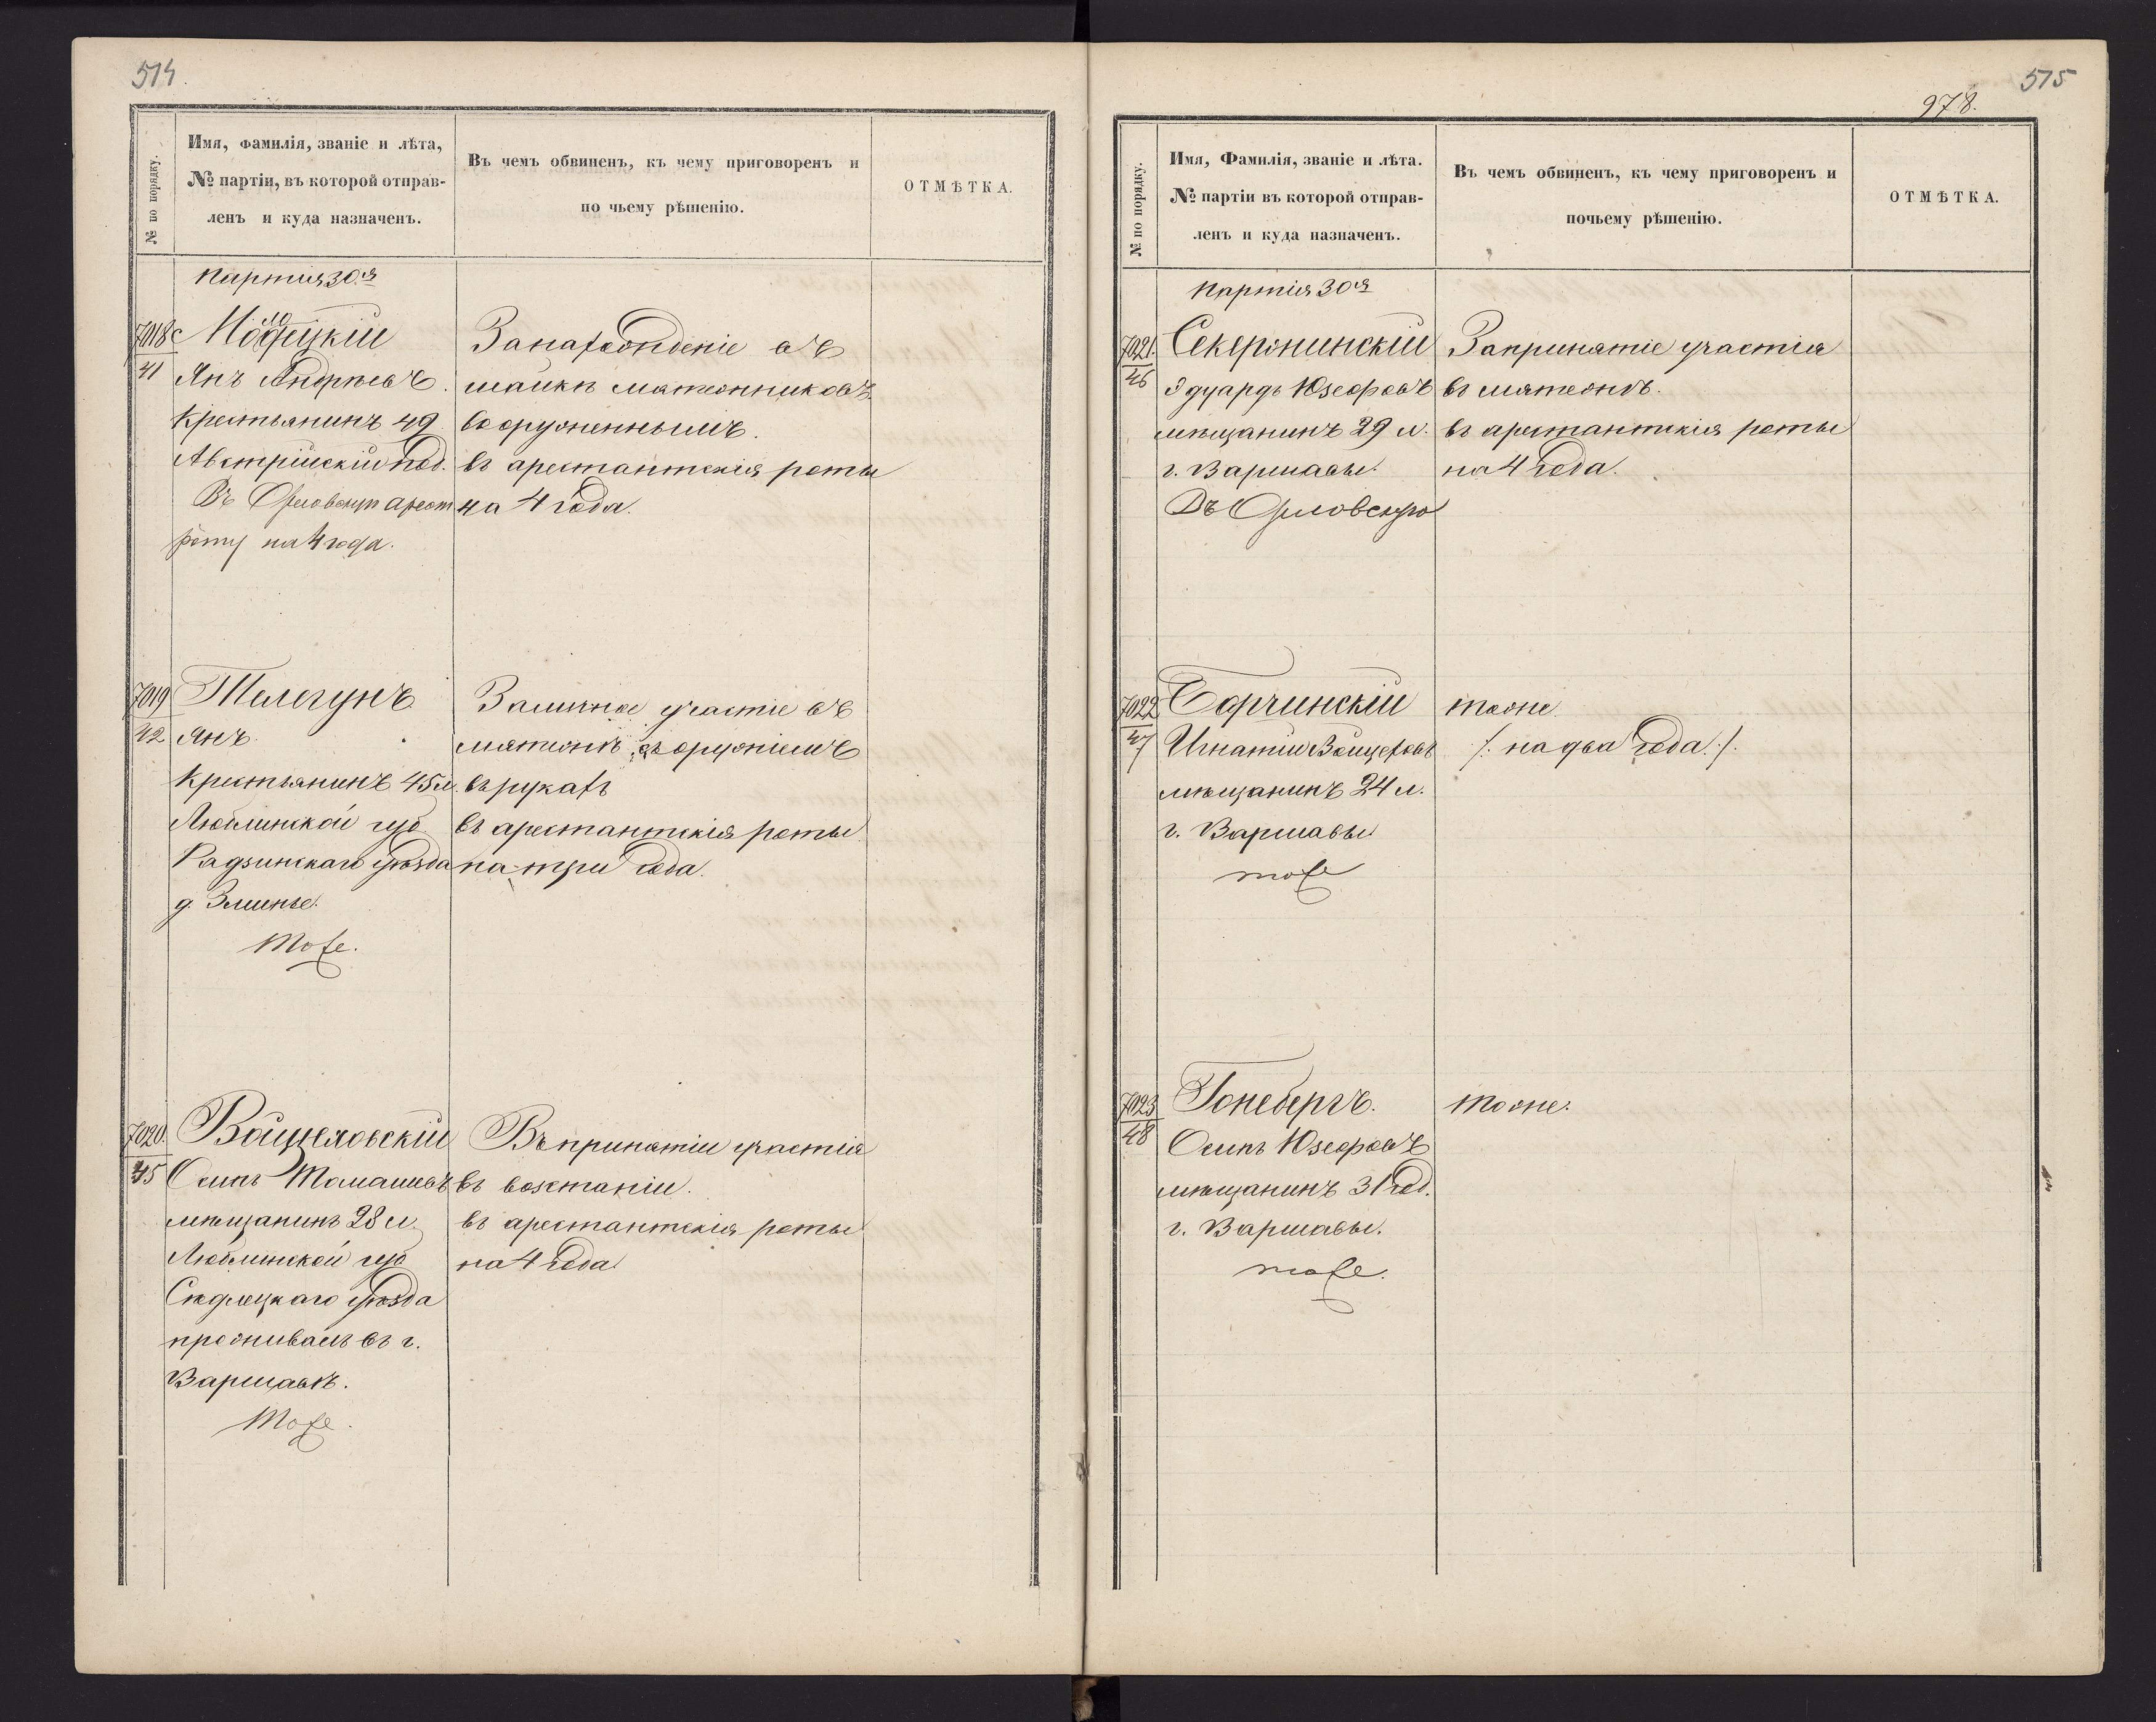 514.
№ по порядку.
Имя, Фамилія, званіе и лѣта,
№ партіи, въ которой отправ-
ленъ и куда назначенъ.
Въ чемъ обвиненъ, къ чему приговоренъ и
по чьему рѣшенію.
ОТМѢТКА.
Партия 30.я
7018
41
Янъ Андреевъ.
Крестьянинъ 49
Австрійскій под.
Въ Орловскую арест
роту на 4 года.
За нахожденіе въ
шайкѣ мятежниковъ
вооруженнымъ.
въ арестантскія роты
на 4 года.
7019
42
Телегунъ
Янъ.
Крестьянинъ 45 л.
Люблинской губ
Радзинскаго уѣзда
д.
Тоже.
За личное участіе въ
мятежѣ съ оружіемъ
въ рукахъ
въ арестантскія роты
на три года.
7020.
45
Войцеховскій
Осипъ Томашевъ
мѣщанинъ 28 л.
Люблинской губ
Сѣдлецкаго уѣзда
проживалъ въ г.
Варшавѣ.
Тоже.
Въ принятіи участія
въ возстаніи.
въ арестантскія роты
на 4 года
515
978.
№ по порядку.
Имя, Фамилія, званіе и лѣта.
№ партіи въ которой отправ-
ленъ и куда назначенъ.
Въ чемъ обвиненъ, къ чему приговоренъ и
почьему рѣшенію.
ОТМѢТКА.
Партія 30я
7021.
46
Секержинскій
Эдуардъ Юзефовъ
мѣщанинъ 29 л.
г. Варшавы.
Въ Орловскую
За принятіе участія
въ мятежѣ.
въ арестантскія роты
на 4 года.
7022
47
Борчинскій
Игнатій Войцеховъ
мѣщанинъ 24 л.
г. Варшавы
тоже
тоже.
/: на два года :/.
7023
48
Гонебергъ.
Осипъ Юзефовъ
мѣщанинъ 31 год.
г. Варшавы.
тоже.
тоже.